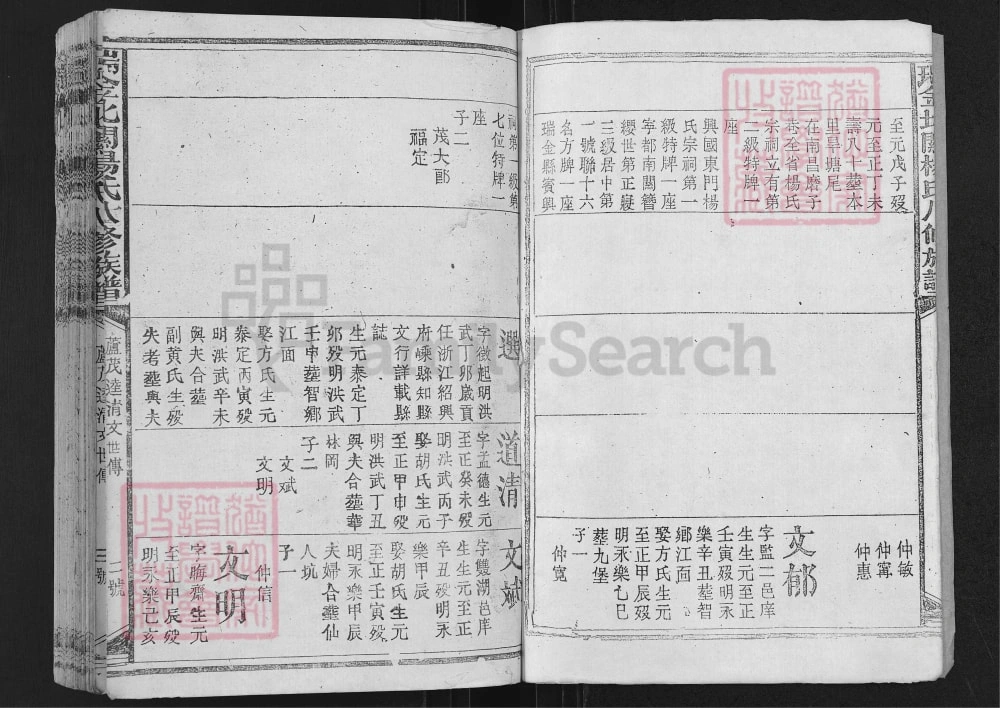 至元戊子歿
元至正丁未
壽八十塟本
里羿塘尾
在南昌磨子
巷全省楊氏
宗祠立有第
二級特牌一
座
興國東門楊
氏宗祠第一
級特牌一座
寧都南關簪
纓世第正寢
三級居中第
一號聯十六
名方牌一座
瑞金縣賓興
仲敏
仲寗
仲惠
文郁
字監二邑庠
生生元至正
壬寅歿明永
樂辛丑塟智
鄉江面
娶方氏生元
至正甲辰歿
明永樂乙巳
塟九堡
子一
仲寛
祠第一級第
七位特牌一
座
子二
茂大郎
福定
選
字徵起明洪
武丁卯歲貢
任浙江紹興
府嵊縣知縣
文行詳載縣
誌
生元泰定丁
卯歿明洪武
壬申塟智鄉
江面
娶方氏生元
泰定丙寅歿
明洪武辛未
與夫合塟
副黄氏生歿
失考塟與夫
道清
字孟德生元
至正癸未歿
明洪武丙子
娶胡氏生元
至正甲申歿
明洪武丁丑
與夫合塟華
林岡
子二
文斌
文明
文斌
字雙湖邑庠
生生元至正
辛丑歿明永
樂甲辰
娶胡氏生元
至正壬寅歿
明永樂甲辰
夫婦合塟仙
人坑
子一
仲信
文明
字晦齋生元
至正甲辰歿
明永樂己亥
瑞金北關楊氏八修族譜
蘆茂逵清文世傳